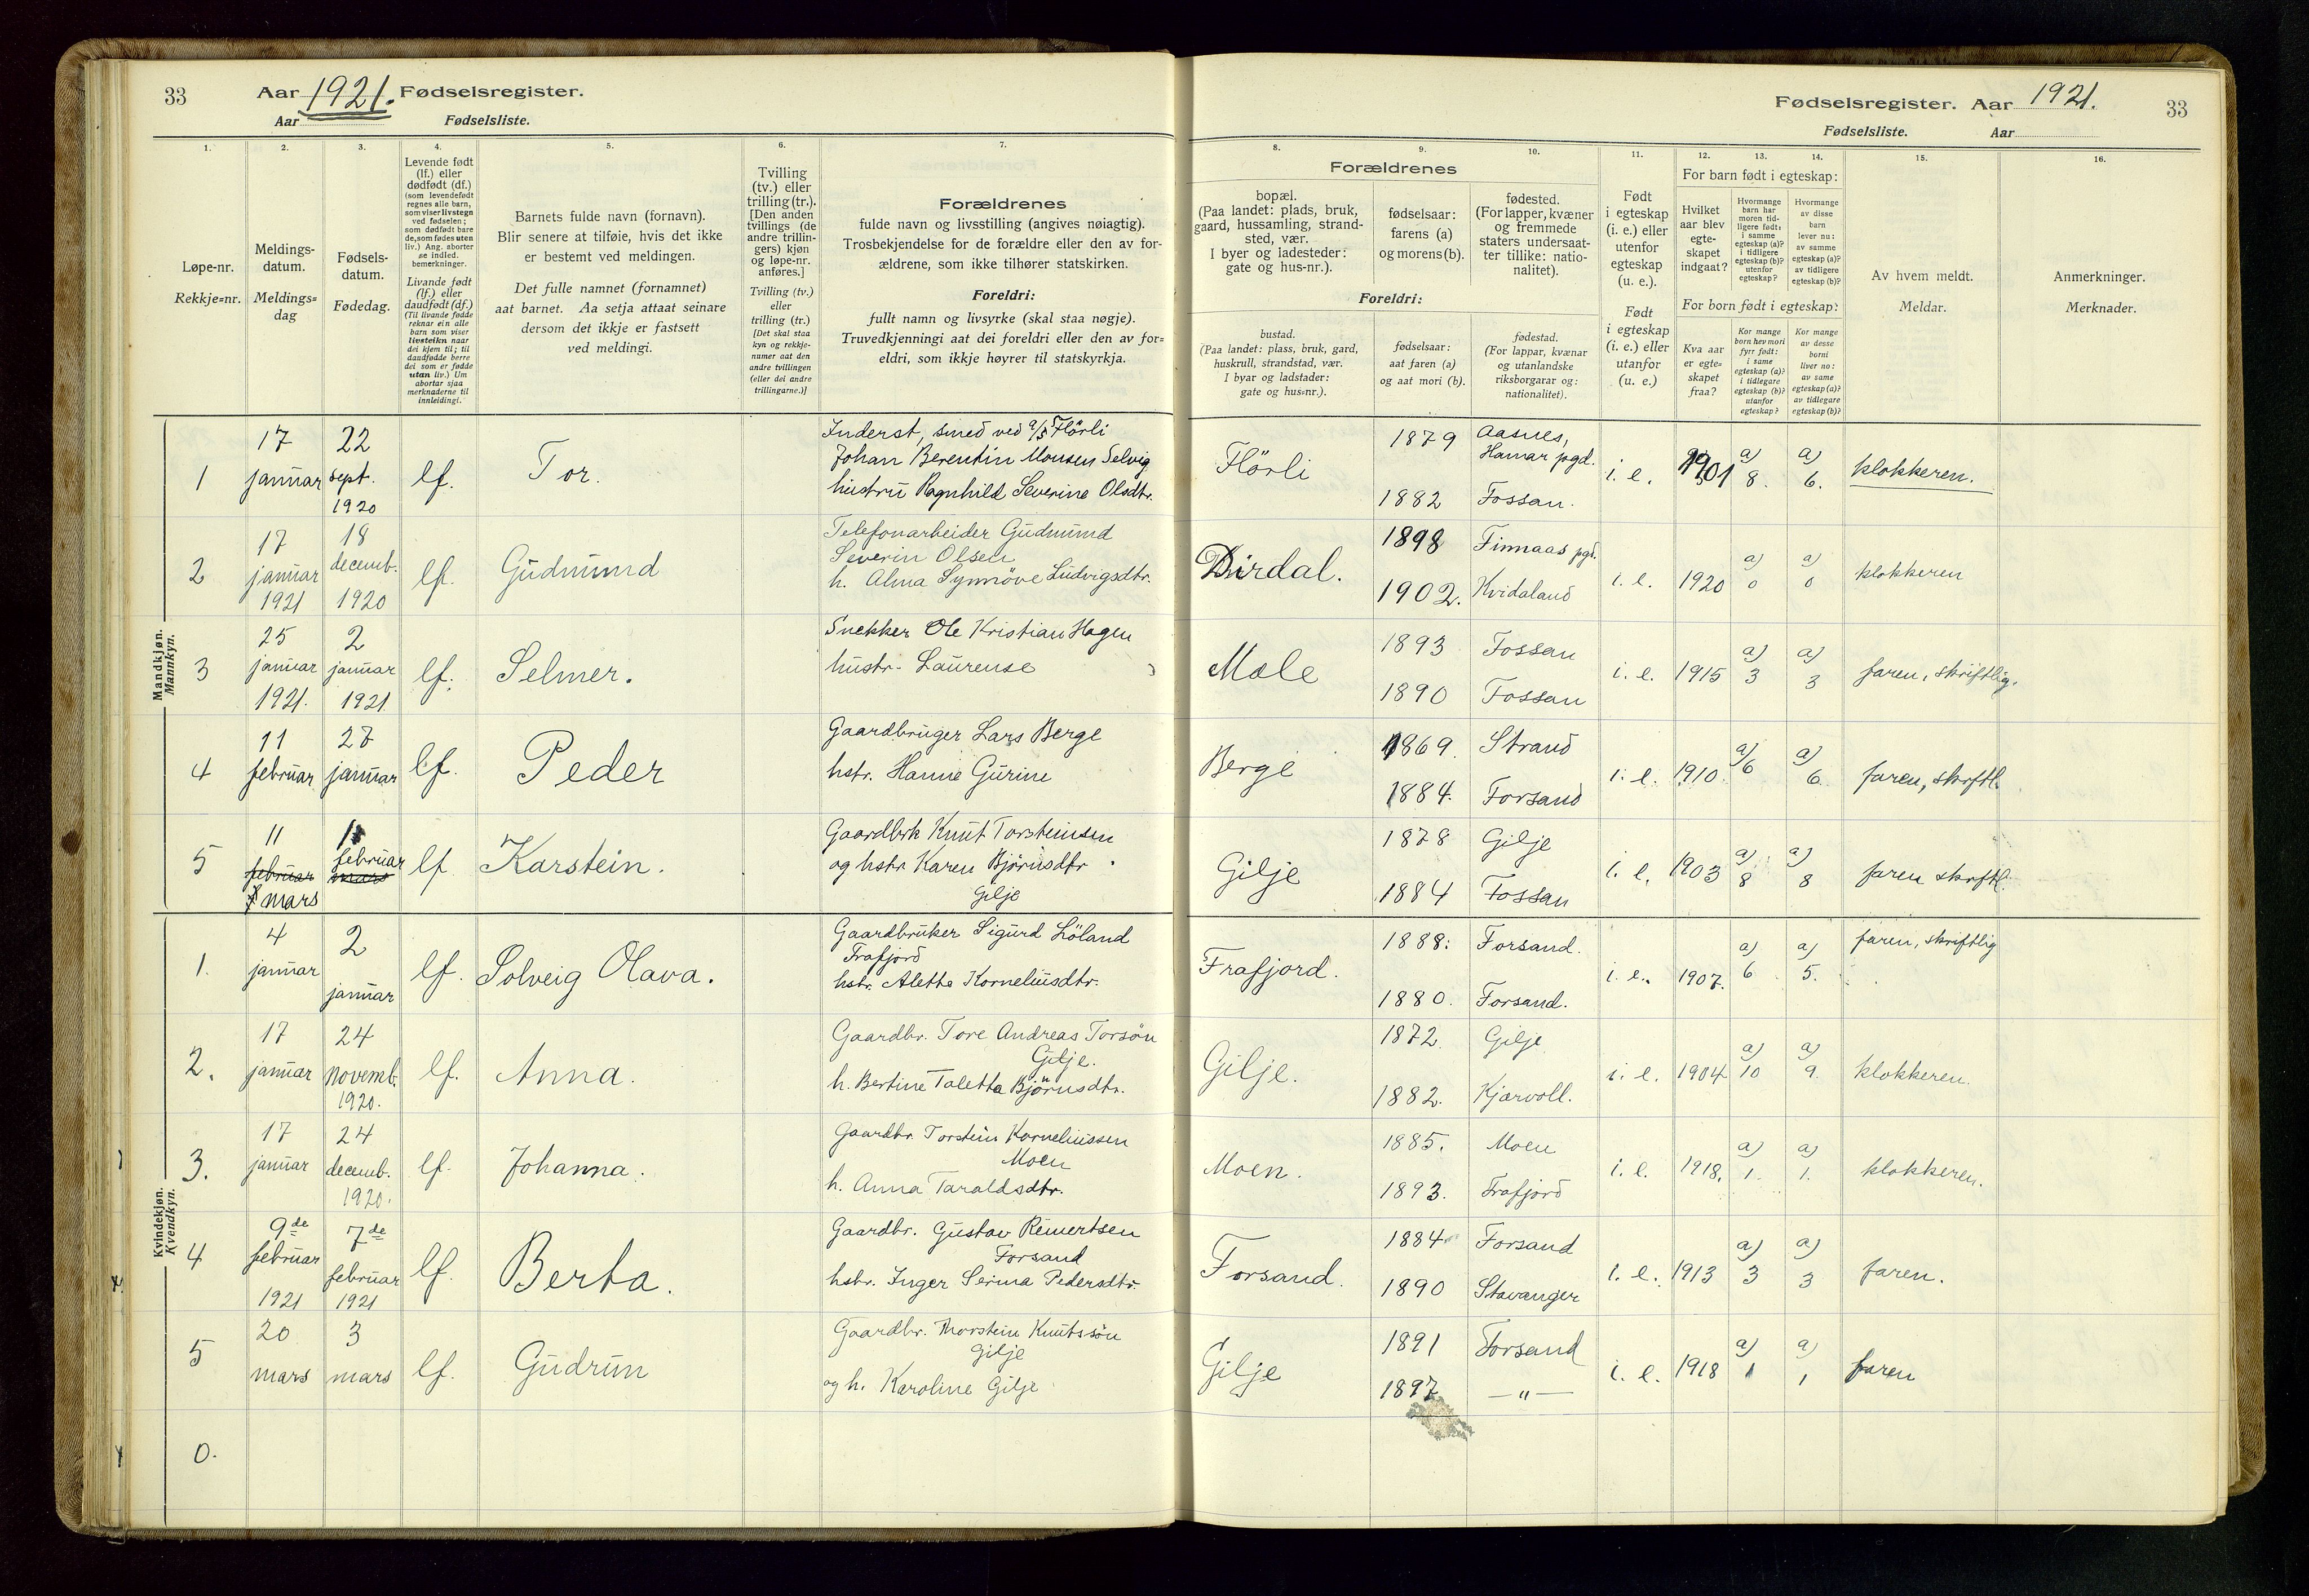 33
Aar 1921. Fødselsregister.
Aar Fødselsliste.
1. 2. 3. 4. 5. 6. 7.
Løpe-nr.
Rekkje=nr.
Meldings-
datum.
Meldings=
dag
Fødsels-
datum.
Fødedag.
Levende født
(lf.) eller
dødfødt (df.)
(som levendefødt
regnes alle barn,
som viser livstegn
ved fødselen;
som dødfødt bare
de, som fødes uten
liv.) Ang. aborter
se indled.
bemerkninger.
Livande født
(lf.) eller
daudfødt (df.)
(Til livande fødde
reknar ein alle
barn som viser
livsteikn naar
dei kjem til; til
daudfødde berre
dei som er fødde
utan liv.) Um
abortar sjaa
merknaderne til
innleidingi.
Barnets fulde navn (fornavn).
Blir senere at tilføie, hvis det ikke
er bestemt ved meldingen.
Det fulle namnet (fornamnet)
aat barnet. Aa setja attaat seinare
dersom det ikkje er fastsett
ved meldingi.
Tvilling
(tv.) eller
trilling (tr.).
[Den anden
tvillings (de
andre trillin-
gers) kjøn
og løpe-nr.
anføres.]
Tvilling (tv.)
eller
trilling (tr.)
[Det skal staa
kyn og rekkje-
numer aat den
andre tvillingen
(eller dei andre
trillingarne.)]
Forældrenes
fulde navn og livsstilling (angives nøiagtig).
Trosbekjendelse for de forældre eller den av for-
ældrene, som ikke tilhører statskirken.
Foreldri:
fullt namn og livsyrke (skal staa nøgje).
Truvedkjenningi aat dei foreldri eller den av for=
eldri, som ikkje høyrer til statskyrkja.
Mandkjøn.
Mankyn.
1
17
januar
22
sept.
1920
lf.
Tor.
Inderst, smed ved a/s Flörli
Johan Berentin Monsen Selvig
hustru Ragnhild Severine Olsdtr.
2
17
januar
1921
18
decemb.
1920
lf.
Gudmund
Telefonarbeider Gudmund
Severin Olsen
h. Alma Synnöve Ludvigsdtr.
3
25
januar
1921.
2
januar
1921
lf.
Selmer.
Snekker Ole Kristian Hagen
hustr. Laurense
4
11
februar
27
januar
lf.
Peder
Gaardbruger Lars Berge
hstr. Hanne Gurine
5
11
februar
mars
februar
mars
lf
Karstein.
Gaardbrk Knut Torsteinsen
og hstr. Karen Björnsdtr
Gilje
Kvindekjøn.
Kvendkyn.
1.
4
januar
2
januar
lf.
Solveig Olava.
Gaardbruker Sigurd Löland
Frafjord
hstr. Alette Korneliusdtr.
2.
17
januar
24
novemb.
1920.
lf.
Anna.
Gaardbr. Tore Andreas Torsön
Gilje.
h. Bertine Taletta Björnsdtr.
3.
17
januar
24
decemb.
1920.
lf.
Johanna.
Gaardbr. Torstein Korneliussen
Moen
h. Anna Taraldsdtr.
4
9de
februar
1921
7de
februar
1921
lf.
Berta.
Gaardbr. Gustav Reinertsen
Forsand
hstr. Inger Serina Pedersdtr.
5
20
mars
3
mars
lf.
Gudrun
Gaardbr. Thorstein Knutssön
Gilje
og h. Karoline Gilje
0.
Fødselsregister. Aar 1921.
33
Fødselsliste. Aar
8. 9. 10. 11. 12. 13. 14. 15. 16.
Forældrenes
bopæl.
(Paa landet: plads, bruk,
gaard, hussamling, strand-
sted, vær.
I byer og ladesteder:
gate og hus-nr.).
fødselsaar:
farens (a)
og morens (b).
fødested.
(For lapper, kvæner
og fremmede
staters undersaat-
ter tillike: natio-
nalitet).
Foreldri:
bustad.
(Paa landet: plass, bruk, gard,
huskrull, strandstad, vær.
I byar og ladstader:
gate og hus=nr.).
fødselsaar:
aat faren (a)
og aat mori (b).
fødestad.
(For lappar, kvænar
og utanlandske
riksborgarar og:
nationalitet).
Født
i egteskap
(i. e.) eller
utenfor
egteskap
(u. e.).
Født
i egteskap
(i. e.) eller
utanfor
(u. e.)
For barn født i egteskap:
Hvilket
aar blev
egte-
skapet
indgaat?
Hvormange
barn har
moren tid-
ligere født:
i samme
egteskap (a)?
i tidligere
egteskap (b)?
utenfor
egteskap?
Hvormange
av disse
barn
lever nu:
av samme
egteskap (a)?
av tidligere
egteskap (b)?
For born født i egteskap:
Kva aar
er egte-
skapet
fraa?
Kor mange
born hev mori
fyrr født:
i same
egteskap (a)?
i tidlegare
egteskap (b)?
utanfor
egteskap?
Kor mange
av desse
borni
liver no:
av same
egteskap (a)?
av tidlegare
egteskap (b)?
Av hvem meldt.
Meldar.
Anmerkninger.
Merknader.
Flörli
1879
1882
Aasnes,
Hamar pgd.
Fossan.
i. e.
1901
a)
8.
a)
6.
klokkeren.
Dirdal.
1898
1902.
Finnaas pgd.
Kvidaland
i. e.
1920
a)
0
a)
0
klokkeren
Mæle
1893
1890
Fossan
Fossan
i. e.
1915
a)
3
a)
3
faren, skriftlig.
Berge
1869
1884.
Strand
Forsand
i. e.
1910.
a)
6
a)
6.
faren, skriftl.
Gilje
1878
1884
Gilje
Fossan
i. e.
1903
a)
8
a)
8
faren skriftl.
Frafjord.
1888.
1880.
Forsand.
Forsand.
i. e.
1907.
a)
6
a)
5.
faren, skriftlig
Gilje.
1872
1882.
Gilje
Kjærvoll.
i. e.
1904
a)
10
a)
9.
klokkeren.
Moen.
1885.
1893.
Moen
Frafjord
i. e.
1918.
a)
1.
a)
1.
klokkeren.
Forsand.
1884
1890
Forsand
Stavanger
i. e.
1913
a)
3
a)
3
faren.
Gilje
1891
1897
Forsand
— " —
i. e.
1918
a)
1
a)
1
faren